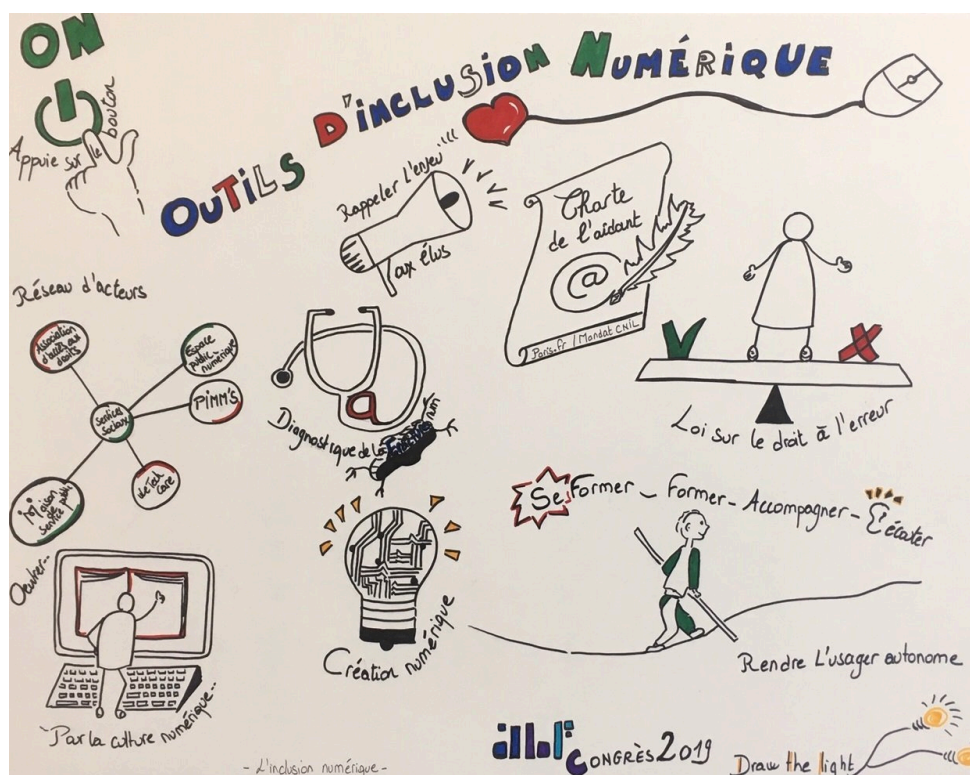 ON
Appuie sur le bouton
OUTILS D'INCLUSION NUMÉRIQUE
Rappeler l'enjeu
aux élus
Charte
de l'aidant
@
Paris.fr / Mandat CNIL
Réseau d'acteurs
Association
d'accès aux
droits
Espace
public numérique
PIMM'S
Services
Sociaux
WeTech
Care
Maison
de
Service public
Diagnostique de la
num
Loi sur le droit à l'erreur
Se Former - Former - Accompagner - écouter
Oeuvrer...
Par la culture numérique...
Création numérique
Rendre l'usager autonome
- L'inclusion numérique -
CONGRÈS 2019
Draw the light